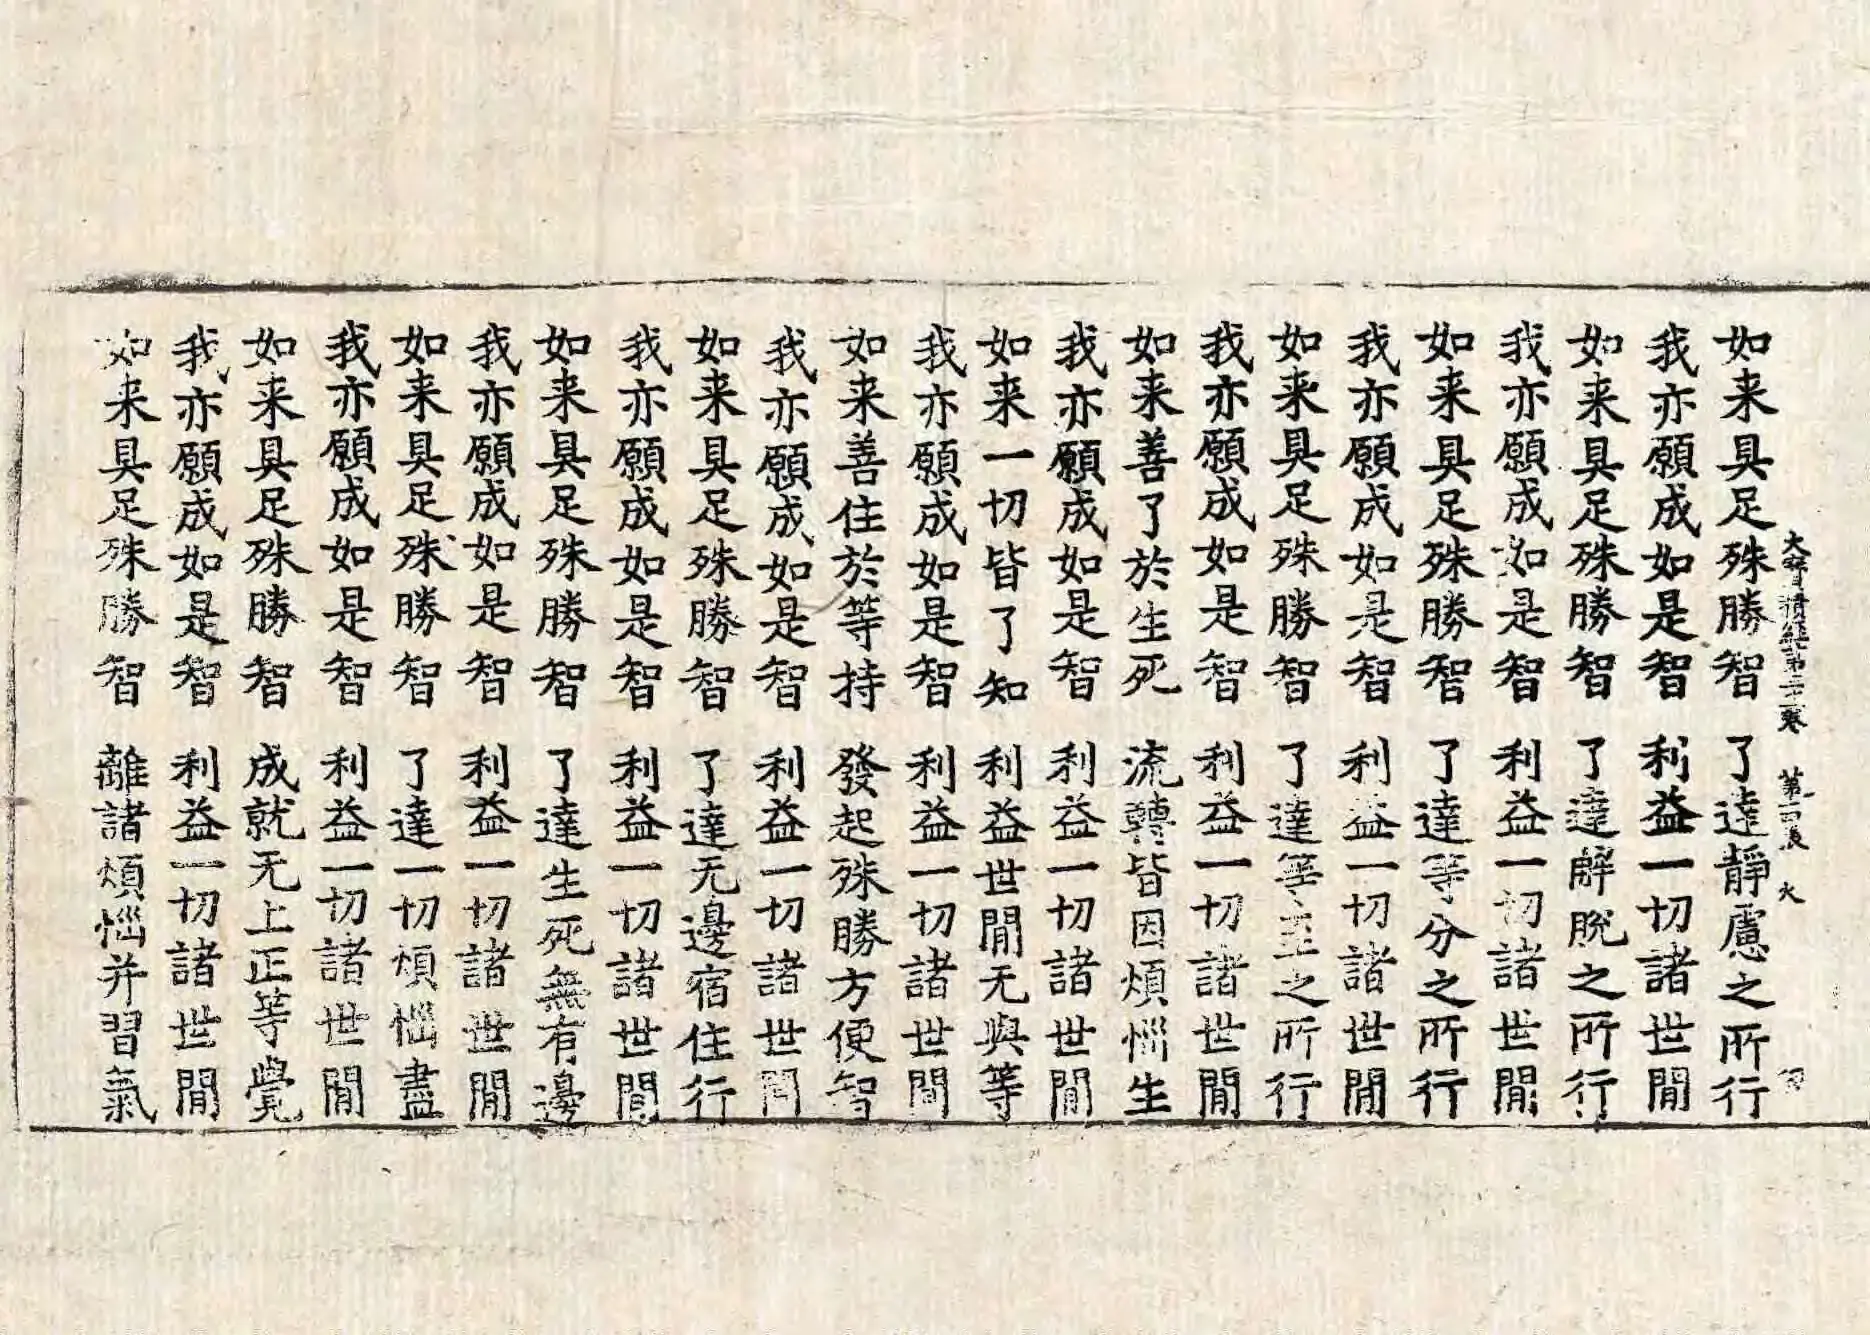 大寶積經第三卷 第張 火
如来具足殊勝智 了達靜慮之所行
我亦願成如是智 利益一切諸世閒
如来具足殊勝智 了達解脫之所行
我亦願成如是智 利益一切諸世閒
如来具足殊勝智 了達等分之所行
我亦願成如是智 利益一切諸世閒
如来具足殊勝智 了達等至之所行
我亦願成如是智 利益一切諸世閒
如来善了於生死 流轉皆因煩惱生
我亦願成如是智 利益一切諸世閒
如来一切皆了知 利益世閒无與等
我亦願成如是智 利益一切諸世閒
如来善住於等持 發起殊勝方便智
我亦願成如是智 利益一切諸世閒
如来具足殊勝智 了達无邊宿住行
我亦願成如是智 利益一切諸世閒
如来具足殊勝智 了達生死無有邊
我亦願成如是智 利益一切諸世閒
如来具足殊勝智 了達一切煩惱盡
我亦願成如是智 利益一切諸世閒
如来具足殊勝智 成就无上正等覺
我亦願成如是智 利益一切諸世閒
如来具足殊勝智 離諸煩惱并習氣